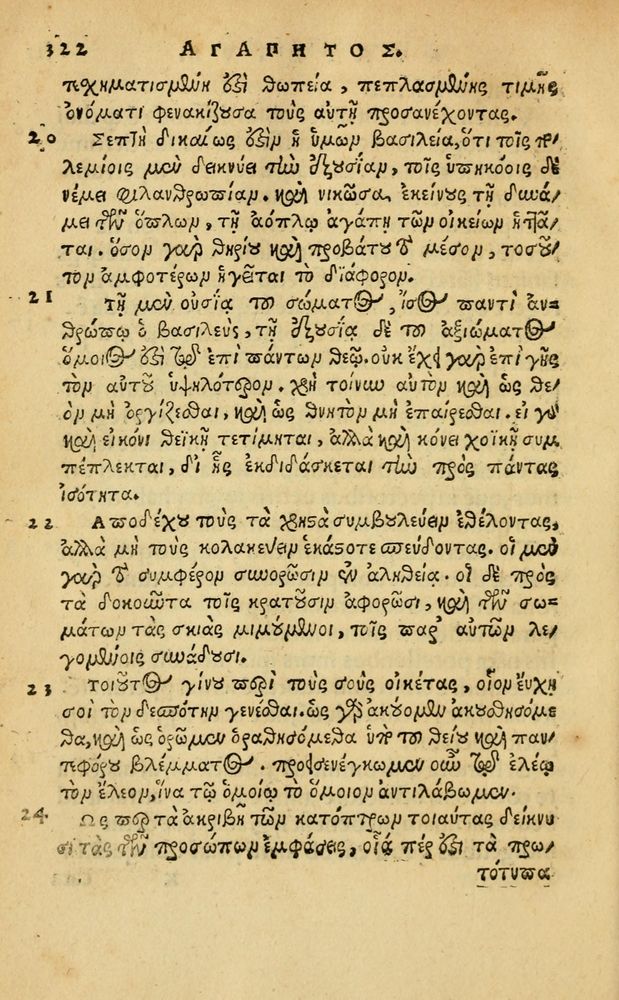 322 ΑΓΑΠΗΤΟΣ.
πεχηματισμένη ἐστὶ θωπεία, πεπλασμένης τιμῆς
ὀνόματι φενακίζουσα τοὺς αὐτῇ προσανέχοντας.
20 Σεπτὴ δικαίως ἐστὶν ἡ ὑμῶν βασιλεία, ὅτι τοῖς πο/
λεμίοις μὲν δεικνύει τὴν ἐξουσίαν, τοῖς ὑπηκόοις δὲ
νέμει φιλανθρωπίαν. καὶ νικῶσα, ἐκείνους τῇ δυνά/
μει τῶν ὅπλων, τῇ ἀόπλῳ ἀγάπῃ τῶν οἰκείων ἡττᾶ/
ται. ὅσον γὰρ θηρίου καὶ προβάτου τὸ μέσον, τοσοῦ/
τον ἀμφοτέρων ἡγεῖται τὸ διάφορον.
21 Τῇ μὲν οὐσίᾳ τοῦ σώματος, ἴσος παντὶ ἀν=
θρώπῳ ὁ βασιλεὺς, τῇ ἐξουσίᾳ δὲ τοῦ ἀξιώματος
ὅμοιός ἐστι τῷ ἐπὶ πάντων θεῷ. οὐκ ἔχει γὰρ ἐπὶ γῆς
τὸν αὐτοῦ ὑψηλότερον. χρὴ τοίνυν αὐτὸν καὶ ὡς θε/
ὸν μὴ ὀργίζεσθαι, καὶ ὡς θνητὸν μὴ ἐπαίρεσθαι. εἰ γὰρ
καὶ εἰκόνι θεϊκῇ τετίμηται, ἀλλὰ καὶ κόνει χοϊκῇ συμ
πέπλεκται, δι' ἧς ἐκδιδάσκεται τὴν πρὸς πάντας
ἰσότητα.
22 Ἀποδέχου τοὺς τὰ χρηστὰ συμβουλεύειν ἐθέλοντας,
ἀλλὰ μὴ τοὺς κολακεύειν ἑκάστοτε σπεύδοντας. οἱ μὲν
γὰρ τὸ συμφέρον συνορῶσιν ἐν ἀληθείᾳ. οἱ δὲ πρὸς
τὰ δοκοῦντα τοῖς κρατοῦσιν ἀφορῶσι, καὶ τῶν σω=
μάτων τὰς σκιὰς μιμούμενοι, τοῖς παρ' αὐτῶν λε/
γομένοις συνᾴδουσι.
23 Τοιοῦτος γίνου περὶ τοὺς σοὺς οἰκέτας, οἷον εὔχῃ
σοὶ τὸν δεσπότην γενέσθαι. ὡς γὰρ ἀκούομεν ἀκουσθησόμε
θα, καὶ ὡς ὁρῶμεν ὁραθησόμεθα ὑπὸ τοῦ θείου καὶ παν
τεφόρου βλέμματος. προεισενέγκωμεν οὖν τῷ ἐλέῳ
τὸν ἔλεον, ἵνα τῷ ὁμοίῳ τὸ ὅμοιον ἀντιλάβωμεν.
24 Ὥσπερ τὰ ἀκριβῆ τῶν κατόπτρων τοιαύτας δείκνυ
σι τὰς τῶν προσώπων ἐμφάσεις, οἷά πέρ ἐστι τὰ πρω/
τότυπα